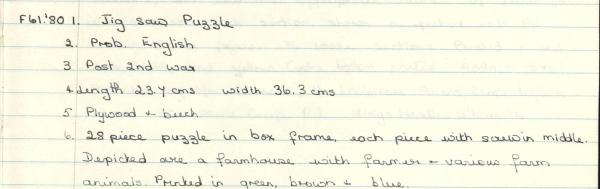 F61.'80 1. Jig saw Puzzle
2. Prob. English
3 Post 2nd war
4 Length 23.7 cms width 36.3 cms
5 Plywood + beech
6. 28 piece puzzle in box frame, each piece with sawin middle.
Depicted are a farmhouse with farmer + various farm
animals. Printed in green, brown + blue.